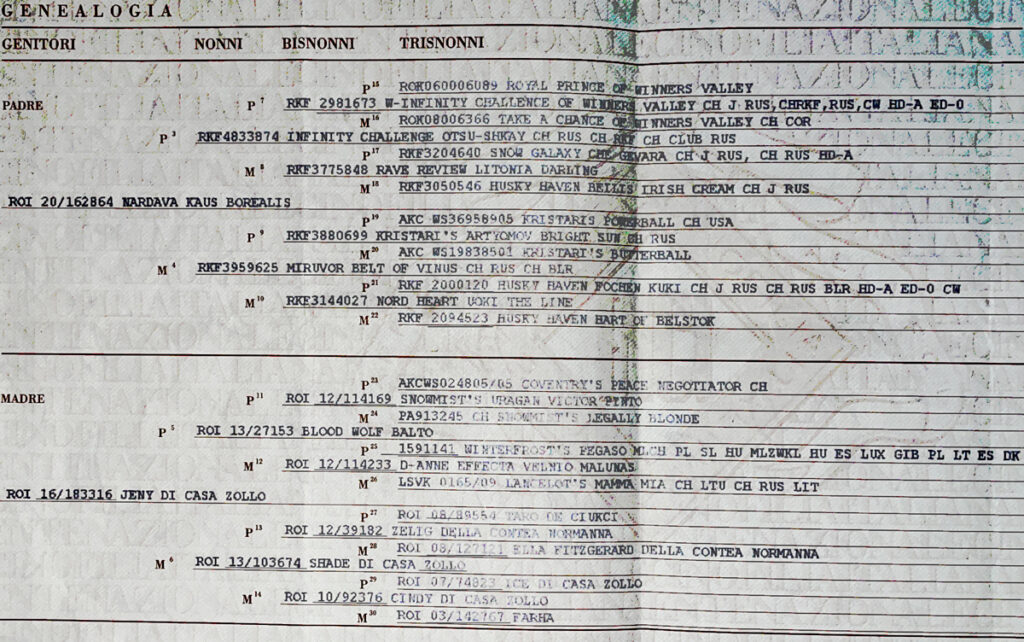 GENEALOGIA
GENITORI NONNI BISNONNI TRISNONNI
P 15 ROK060006089 ROYAL PRINCE OF WINNERS VALLEY
PADRE P 7 RKF 2981673 W-INFINITY CHALLENGE OF WINNERS VALLEY CH J RUS,CHRKF,RUS,CW HD-A ED-0
M 16 ROK08006366 TAKE A CHANCE OF WINNERS VALLEY CH COR
P 3 RKF4833874 INFINITY CHALLENGE OTSU-SHKAY CH RUS CH RKF CH CLUB RUS
P 17 RKF3204640 SNOW GALAXY CHE GEVARA CH J RUS, CH RUS HD-A
M 8 RKF3775848 RAVE REVIEW LITONIA DARLING
M 18 RKF3050546 HUSKY HAVEN BELLIS IRISH CREAM CH J RUS
ROI 20/162864 NARDAVA KAUS BOREALIS
P 19 AKC WS36958905 KRISTARIS POWERBALL CH USA
P 9 RKF3880699 KRISTARI'S ARTYOMOV BRIGHT SUN CH RUS
M 20 AKC WS19838501 KRISTARI'S BUTTERBALL
M 4 RKF3959625 MIRUVOR BELT OF VINUS CH RUS CH BLR
P 21 RKF 2000120 HUSKY HAVEN FOCHEN KUKI CH J RUS CH RUS BLR HD-A ED-0 CW
M 10 RKF3144027 NORD HEART UOKI THE LINE
M 22 RKF 2094523 HUSKY HAVEN HART OF BELSTOK
P 23 AKCWS024805/05 COVENTRY'S PEACE NEGOTIATOR CH
MADRE P 11 ROI 12/114169 SNOWMIST'S URAGAN VICTOR PINTO
M 24 PA913245 CH SNOWMIST'S LEGALLY BLONDE
P 5 ROI 13/27153 BLOOD WOLF BALTO
P 25 1591141 WINTERFROST'S PEGASO MLCH PL SL HU MLZWKL HU ES LUX GIB PL LT ES DK
M 12 ROI 12/114233 D-ANNE EFFECTA VELNIO MALUNAS
M 26 LSVK 0165/09 LANCELOT'S MAMMA MIA CH LTU CH RUS LIT
ROI 16/183316 JENY DI CASA ZOLLO
P 27 ROI 08/89554 TARO DE CIUKCI
P 13 ROI 12/39182 ZELIG DELLA CONTEA NORMANNA
M 28 ROI 08/127121 ELLA FITZGERARD DELLA CONTEA NORMANNA
M 6 ROI 13/103674 SHADE DI CASA ZOLLO
P 29 ROI 07/74823 ICE DI CASA ZOLLO
M 14 ROI 10/92376 CINDY DI CASA ZOLLO
M 30 ROI 03/142767 FARHA